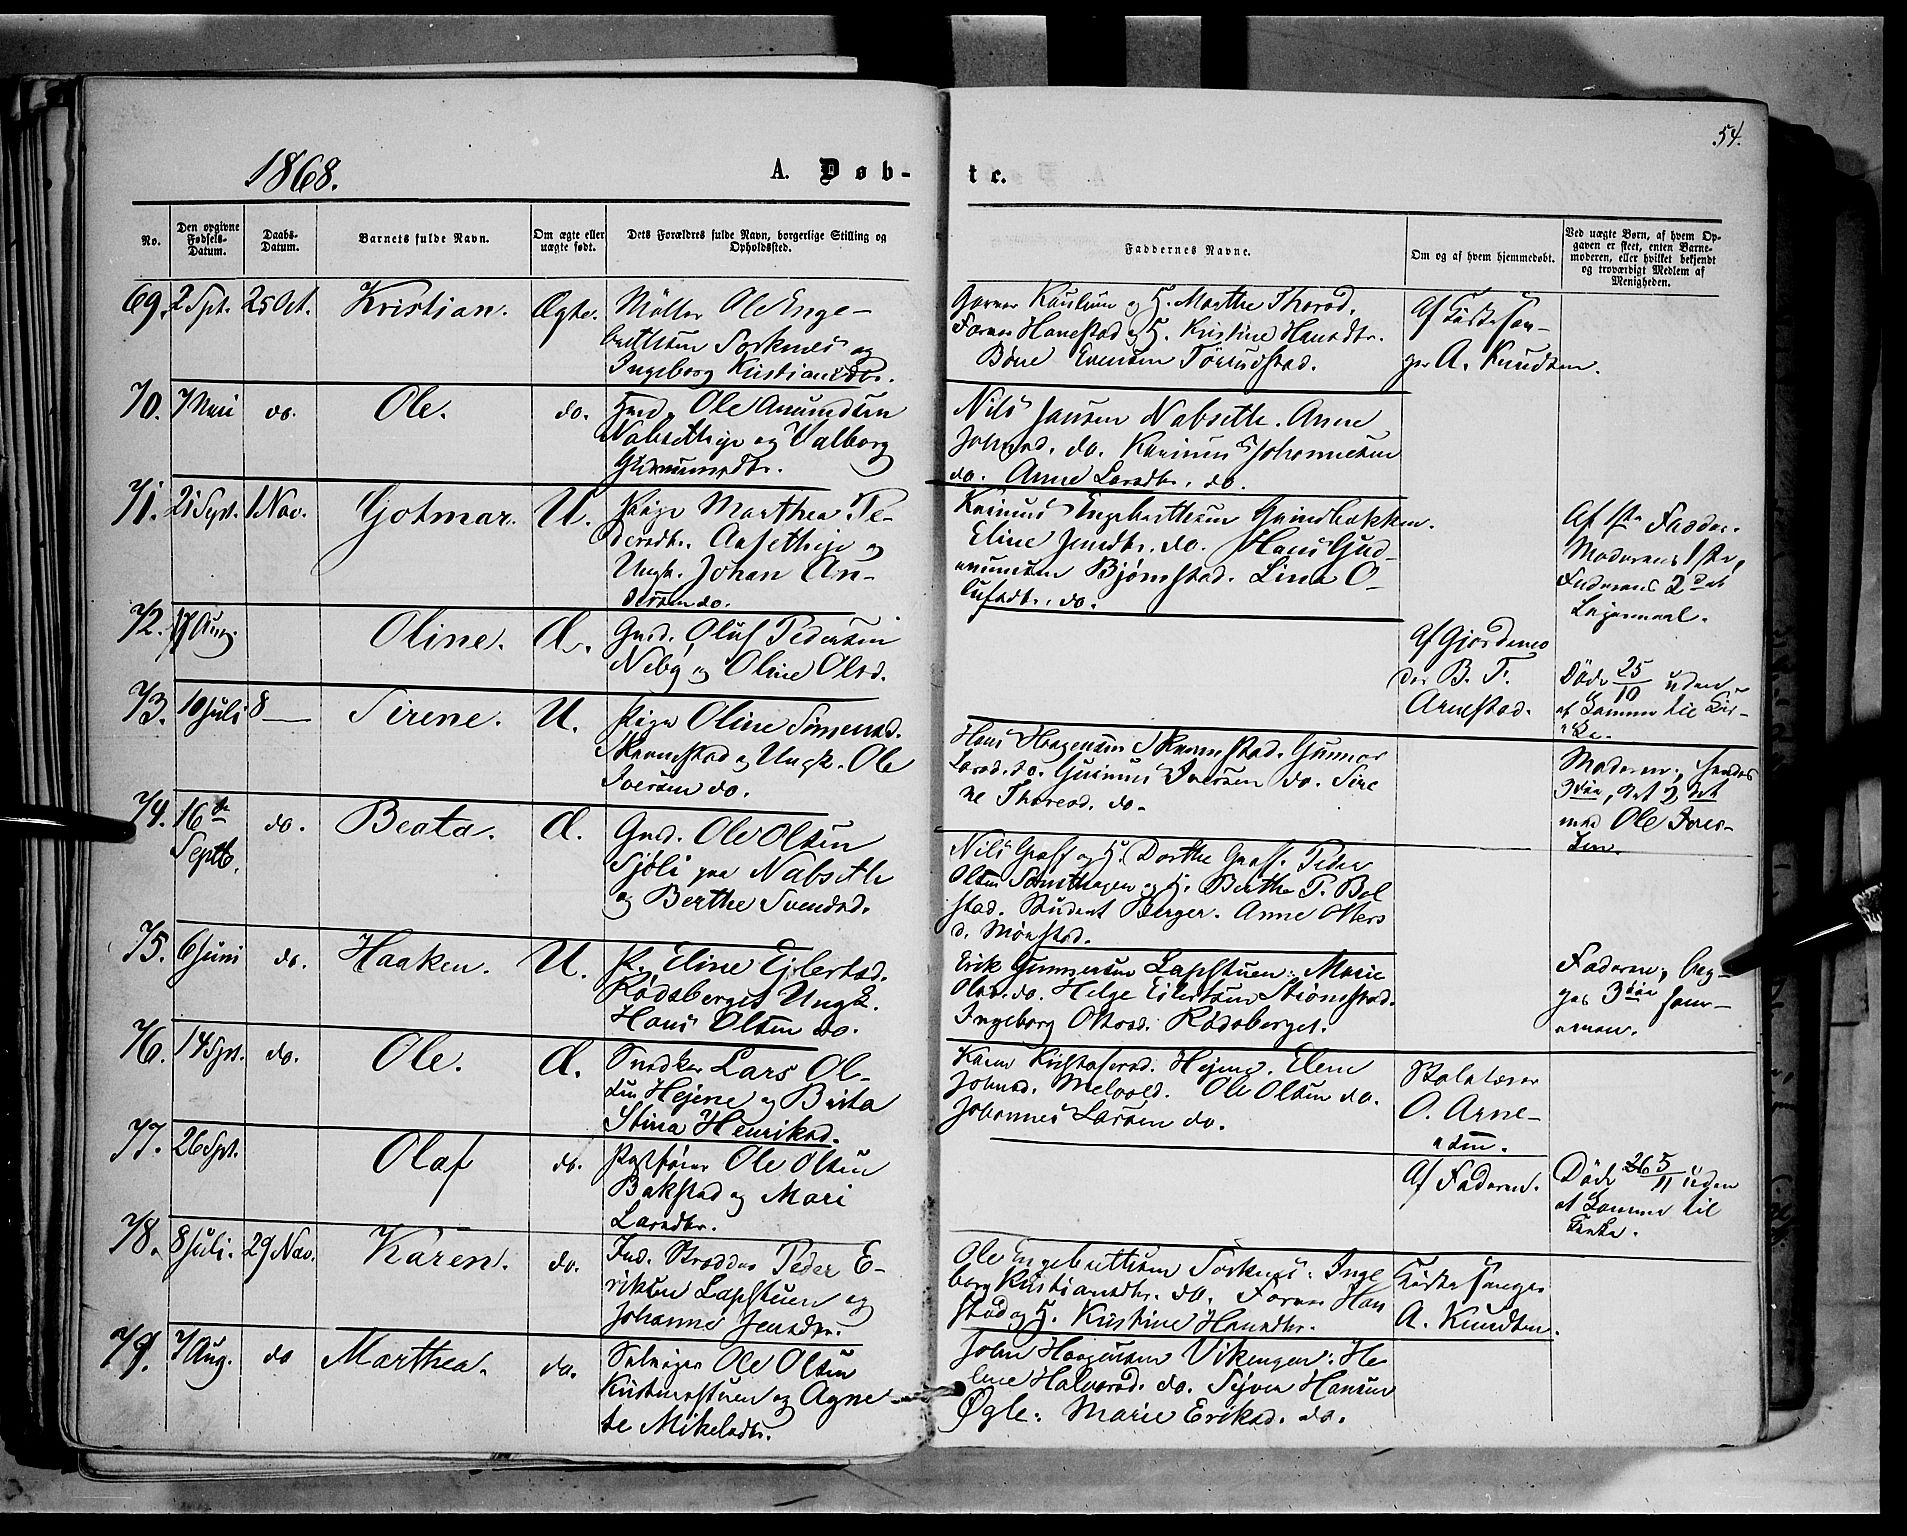 54.
1868.
A. Døb-
te.
No.
Den opgivne Fødsels-Datum.
Daabs-Datum.
Barnets fulde Navn.
Om ægte eller uægte født.
Dets Forældres fulde Navn, borgerlige Stilling og Opholdssted.
Faddernes Navne.
Om og af hvem hjemmedøbt.
Ved uægte Børn, af hvem Op-
gaven er skeet, enten Barne-
moderen, eller hvilket bekjendt
og troværdigt Medlem af
Menigheden.
69. 2 Spt. 25 Oct. Kristian. Ægte.
Møller Ole Enge-
bretsen Sorknes og
Ingeborg Kristiansdtr.
og H. Marthe Thorsd.
Hanestad og H. Kristine Hansdtr.
Evensen
Af Kirkesan-
ger A. Knudsen.
70. 7 Mai do. Ole. do.
Gmd. Ole Amundsen
Nabsetheje og Valborg
Gudmunsdtr.
Nils Jensen Nabseth. Anne
Johnsd. do. Karinus Johannesen
do. Anne Larsdtr. do.
71. 21 Spt. 1 Nov. Gjotmar. U.
Pige Marthea Pe-
dersdtr. Aasetheje og
Ungk. Johan An-
dersen do.
Karinus Engebretsen Grindbakken.
Eline Jensdtr. do. Hans Gud-
munsen Bjørnstad. Lina O-
lufsdtr. do.
Af 1ste Fadder.
Moderens 1ste,
Faderens 2det
Lejermaal.
72. 17 Aug. Oline. Æ.
Gmd. Oluf Pedersen
Neby og Oline Olsd.
Af Gjordemo
der B. T.
Arnestad.
Døde 25/10 uden
at komme til Kir-
ke.
73. 10 Juli 8 — Sirene. U.
Pige Oline Simensd.
Skramstad og Ungk. Ole
Iversen do.
Hans Haagensen Skramstad. Gunnor
Larsd. do. Gunnus Iversen do. Sire
ne Thoresd. do.
Moderen; hendes
3die, det 2det
med Ole Iver-
sen.
74. 16de Septb. do. Beata. Æ.
Gmd. Ole Olsen
Sjøli paa Nabseth
og Berthe Svendsd.
Nils Graff og H. Dorthe Graff. Peder
Olsen og H. Berthe P. Bol
stad. Student Berger. Anne Olers
d. Mønstad.
75. 6 Juni do. Haaken. U.
P. Eline Ejlertsd.
Rødsberget Ungk.
Hans Olsen do.
Erik Gunnersen Lapstuen. Marie
Olsd. do. Helge Ejlertsen Strømstad.
Ingeborg Olsd. Rødsberget.
Faderen; beg-
ges 3die sam-
men.
76. 14 Spt. do. Ole. Æ.
Snedker Lars Ol-
sen Hejene og Brita
Stina Henriksd.
Karen Kristofersd. Hejene. Elene
Johnsd. Melvold. Ole Olsen do.
Johannes Larsen do.
Skolelærer
O. Arne-
sen.
77. 26 Spt. Olaf do.
Postfører Ole Olsen
Bakstad og Mari
Larsdtr.
Af Faderen.
Døde 5/11 uden
at komme til
Kirke.
78. 8 Juli. 29 Nov. Karen. do.
Ind. Skrædder Peder E-
riksen Lapstuen og
Johanne Jensdtr.
Ole Engebretsen Sorknes. Inge
borg Kristiansdtr. do. Han
stad og H. Kristine Hansdtr.
Kirkesanger
A. Knudsen.
79. 7 Aug. do Marthea. do.
Selvejer Ole Olsen
Kristenstuen og Agne-
te Mikelsdtr.
John Haagensen Vikengen. He-
lene Halvorsd. do. Syver Hansen
Øgle. Marie Eriksd. do.